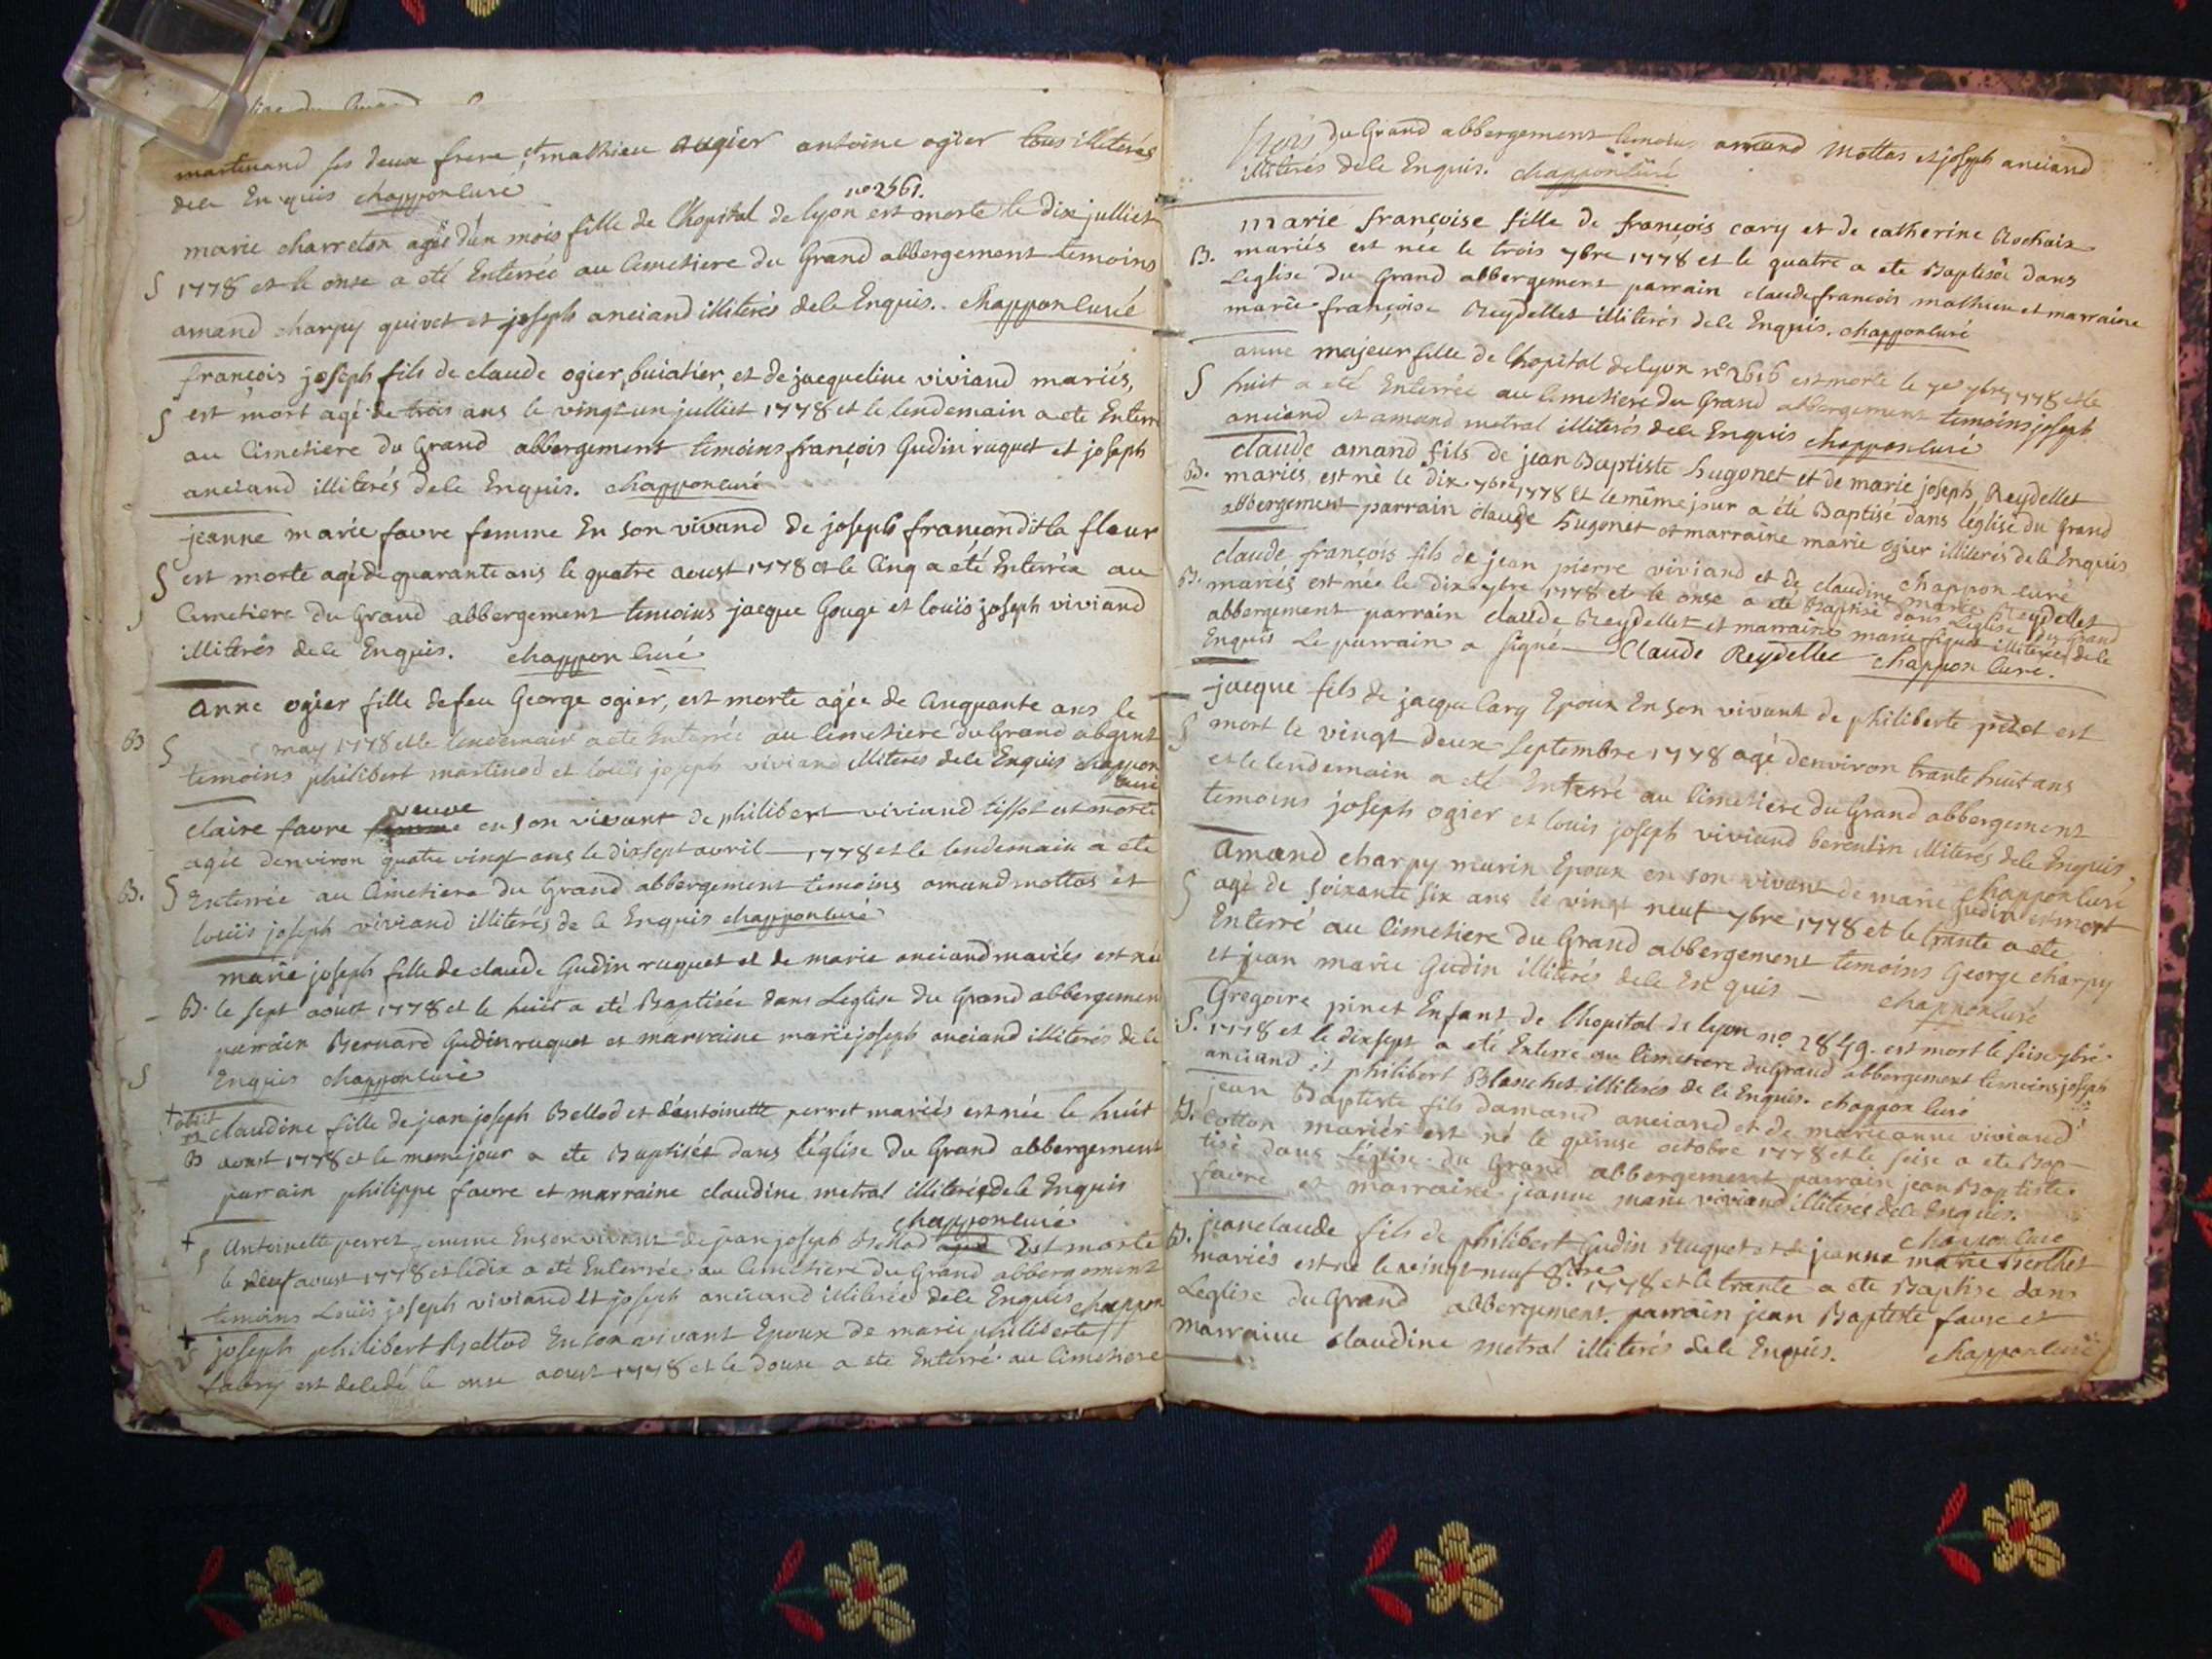 martinand ses deux frere, et mathieu augier antoine ogier tous illiterés
dele Enquis chappon curé
n° 2561.
marie charreton agée d'un mois fille de l'hopital de lyon est morte le dix julliet
S 1778 et le onse a eté Enterrée au Cimetiere du Grand abbergement temoins
amand charpy quivet et joseph anciand illiterés dele Enquis. chappon curé
françois joseph fils de claude ogier, buiatier, et de jacqueline viviand mariés,
S est mort agé de trois ans le vingt un julliet 1778 et le lendemain a ete Enterré
au Cimetiere du Grand abbergement temoins françois Gudin ruquet et joseph
anciand illiterés dele Enquis. chappon curé
jeanne marie favre femme En son vivand de joseph françon dit la fleur
S est morte agé de quarante ans le quatre aoust 1778 et le Cinq a eté Enterrée au
Cimetiere du Grand abbergement temoins jacque Gouge et louïs joseph viviand
illiterés dele Enquis. chappon curé
anne ogier fille de feu George ogier, est morte agée de Cinquante ans le
B S may 1778 et le lendemain a eté Enterrée au Cimetiere du Grand abgent
temoins philibert martinod et louïs joseph viviand illiterés dele Enquis chappon
curé
veuve
claire favre femme en son vivant de philibert viviand tissot est morte
agée denviron quatre vingt ans le dixsept avril 1778 et le lendemain a ete
B. S Enterrée au Cimetiere du Grand abbergement temoins amand mottas et
louïs joseph viviand illiterés de le Enquis chappon curé
marie joseph fille de claude Gudin ruquet et de marie anciand mariés est née
B. le sept aoust 1778 et le huit a eté Baptisée dans Leglise du Grand abbergement
parrain Bernard Gudin ruquet et marraine marie joseph anciand illiterés de le
S Enquis chappon curé
† obiit claudine fille de jean joseph Bellod et d'antoinette perret mariés est née le huit
B aoust 1778 et le meme jour a ete Baptisée dans l'église du Grand abbergement
parrain philippe favre et marraine claudine metral illiterés dele Enquis
chappon curé
† S Antoinette perret femme En son vivant de jean joseph Bellod est morte
le neuf aoust 1778 et le dix a eté Enterrée au Cimetiere du Grand abbergement
temoins Louïs joseph viviand et joseph anciand illiterés dele Enquis chappon
† joseph philibert Bellod En son vivant Epoux de marie philiberte
S fabry est deledé le onse aoust 1778 et le douse a ete Enterré au Cimetiere
du Grand abbergement temoins amand Mottas et joseph anciand
illiterés dele Enquis. chappon curé
marie françoise fille de françois cary et de catherine Rochaix
B. mariés est née le trois 7bre 1778 et le quatre a ete Baptisée dans
Leglise du Grand abbergement parrain claude françois mathieu et marraine
marie françoise Reydellet illiterés dele Enquis. chappon curé
anne majeur fille de l'hopital de lyon n° 2616 est morte le 7e 7bre 1778 et le
S huit a eté Enterrée au Cimetiere du Grand abbergement temoins joseph
anciand et amand metral illiterés dele Enquis chappon curé
claude amand fils de jean Baptiste hugonet et de marie joseph Reydellet
B. mariés est né le dix 7bre 1778 et le même jour a été Baptisé dans l'église du Grand
abbergement parrain claude hugonet et marraine marie ogier illiterés de le Enquis
chappon curé
claude françois fils de jean pierre viviand et de claudine marie Reydellet
B. mariés est née le dix 7bre 1778 et le onse a eté Baptisé dans Leglise du Grand
abbergement parrain claude Reydellet et marraine marie illiterée dele
Enquis Le parrain a signé Claude Reydellet chappon curé.
jacque fils de jacque Cary Epoux En son vivant de philiberte pitet est
S mort le vingt deux Septembre 1778 agé denviron trante huit ans
et le lendemain a eté Enterré au Cimetiere du Grand abbergement
temoins joseph ogier et louis joseph viviand berentin illiterés dele Enquis.
chappon curé
amand charpy murin Epoux en son vivant de marie Gudin est mort
S agé de soixante six ans le vingt neuf 7bre 1778 et le trante a ete
Enterré au Cimetiere du Grand abbergement temoins George charpy
et jean marie Gudin illiterés dele Enquis chappon curé
Gregoire pinet Enfant de l'hopital de lyon n° 2849. est mort le seise 7bre
S. 1778 et le dixsept a eté Enterré au Cimetiere du Grand abbergement temoins joseph
anciand et philibert Blanchet illiterés de le Enquis. chappon curé
jean Baptiste fils d'amand anciand et de marie anne viviand
B. Cotton mariés est né le quinse octobre 1778 et le seise a ete Bap-
tisé dans L'église du Grand abbergement parrain jean Baptiste
favre et marraine jeanne marie viviand illiterés dele Enquis.
chappon curé
B. jean claude fils de philibert Gudin Ruquet et de jeanne marie Berthet
mariés est né le vingt neuf 8.bre 1778 et le trante a ete Baptisé dans
Leglise du Grand abbergement. parrain jean Baptiste favre et
marraine claudine metral illiterés dele Enquis. chappon curé